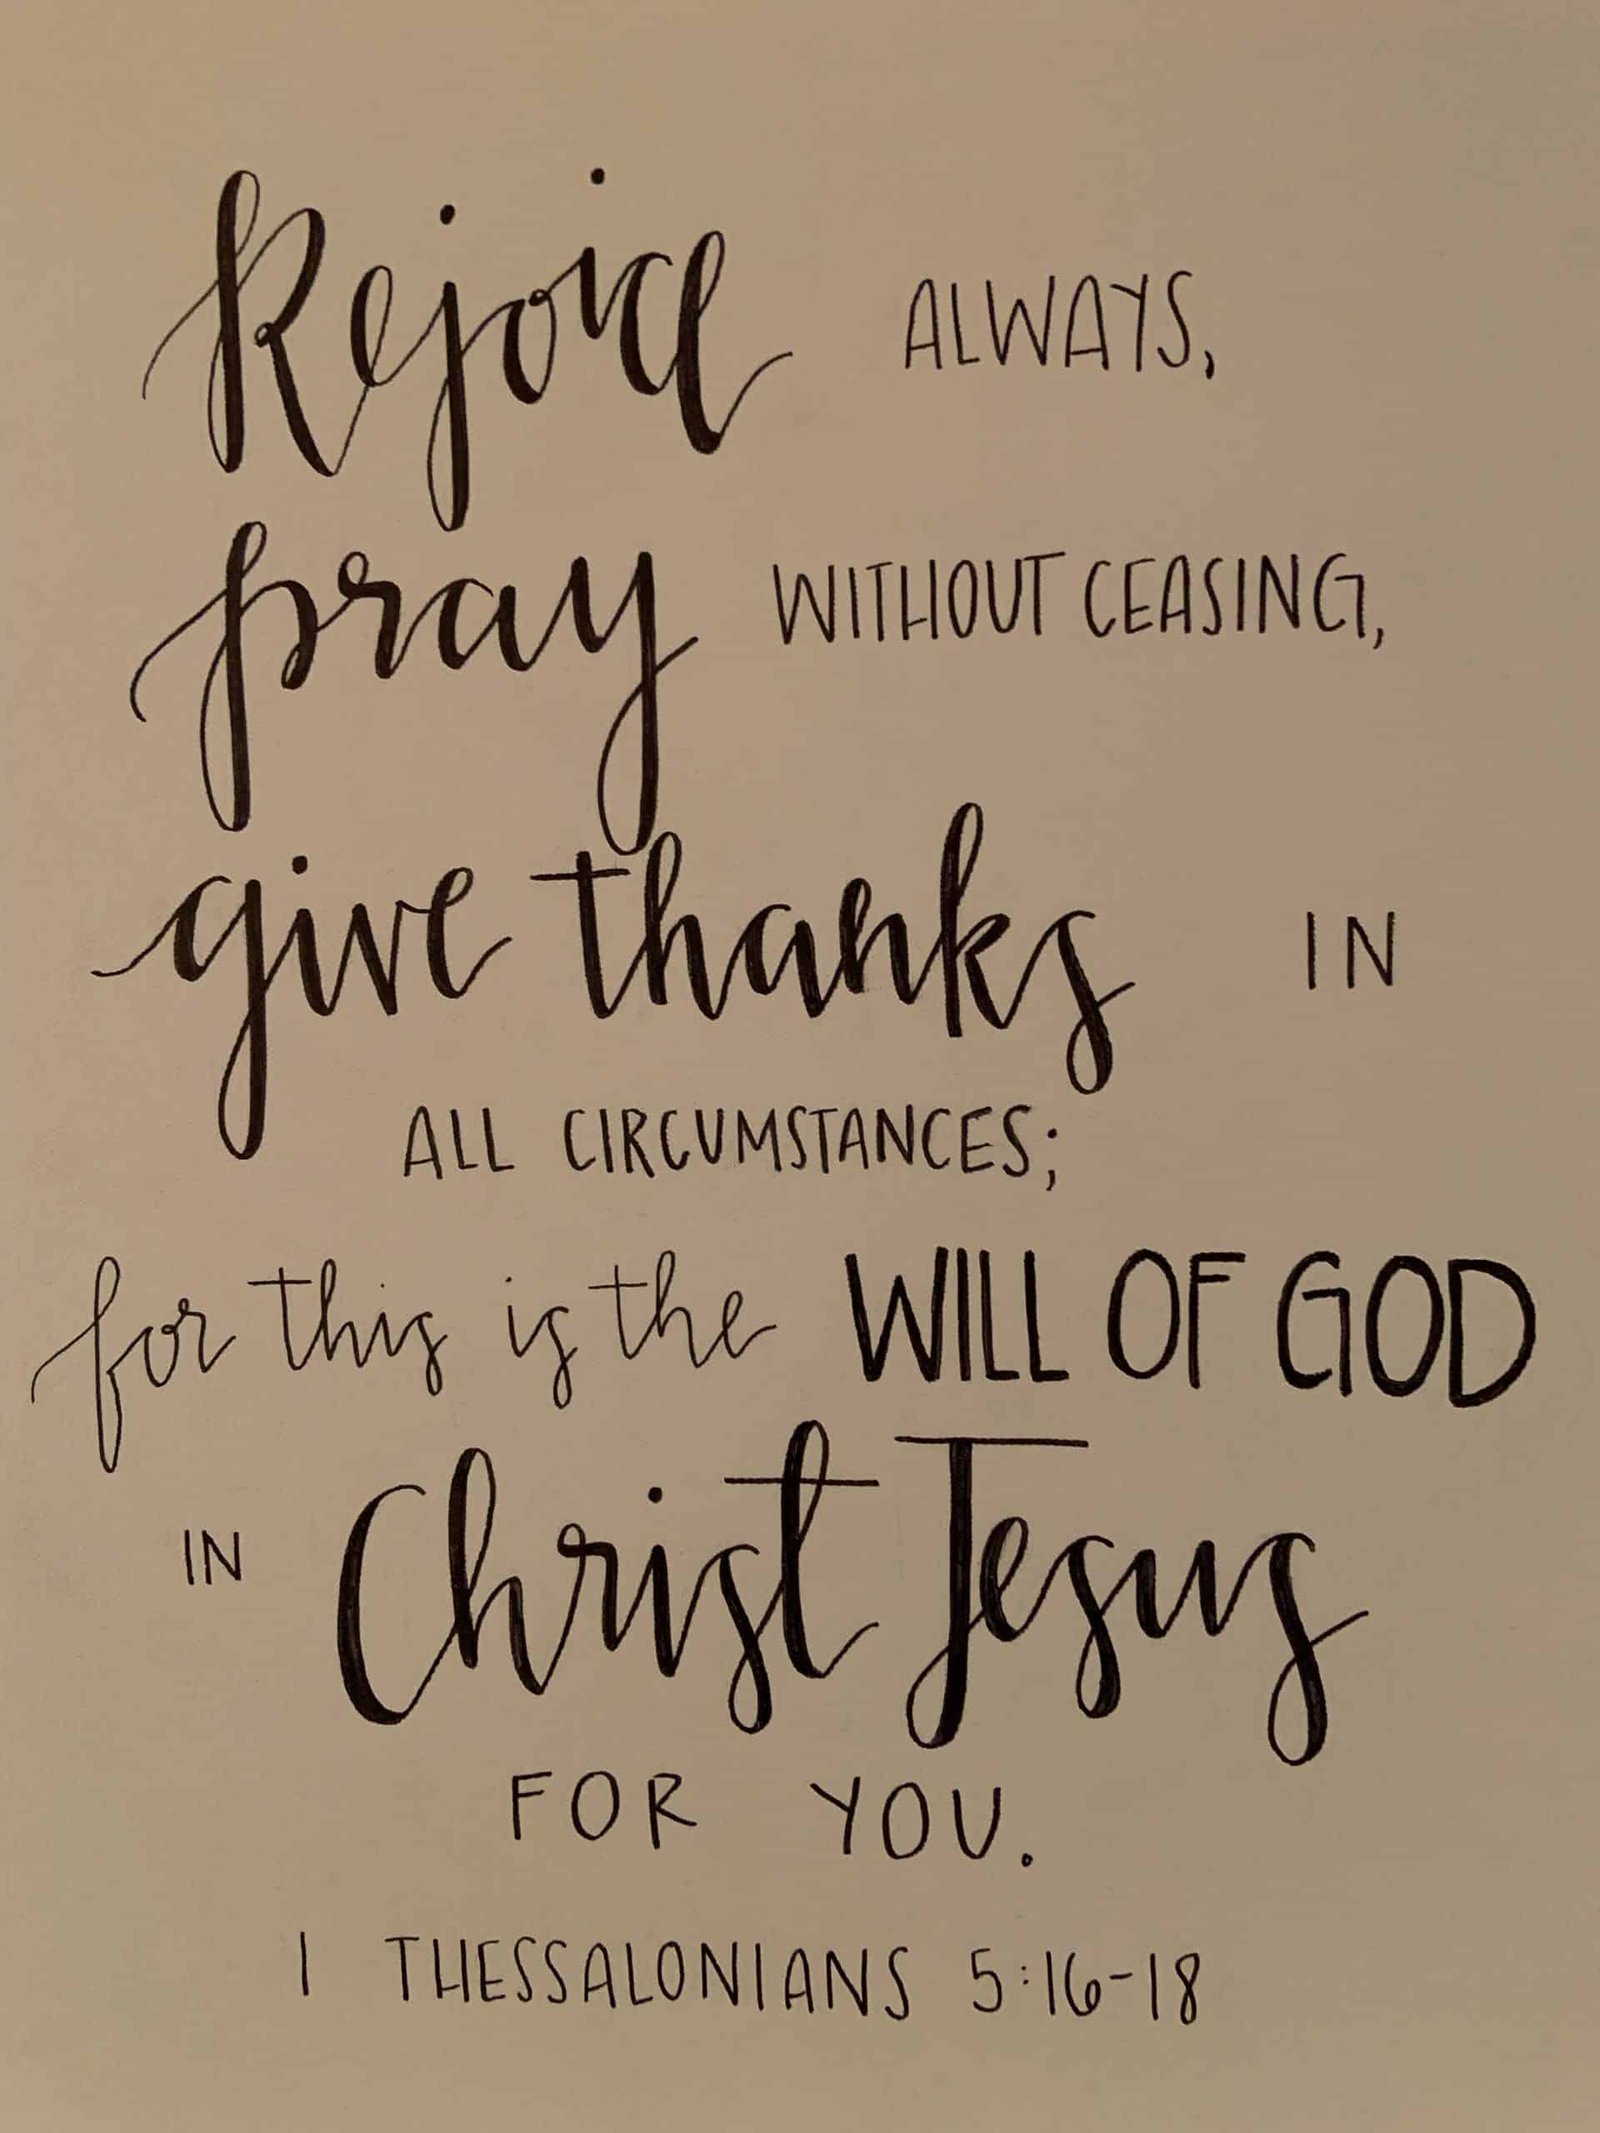 Rejoice ALWAYS,
pray WITHOUT CEASING,
give thanks IN
ALL CIRCUMSTANCES;
for this is the WILL OF GOD
IN Christ Jesus
FOR YOU.
1 THESSALONIANS 5:16-18